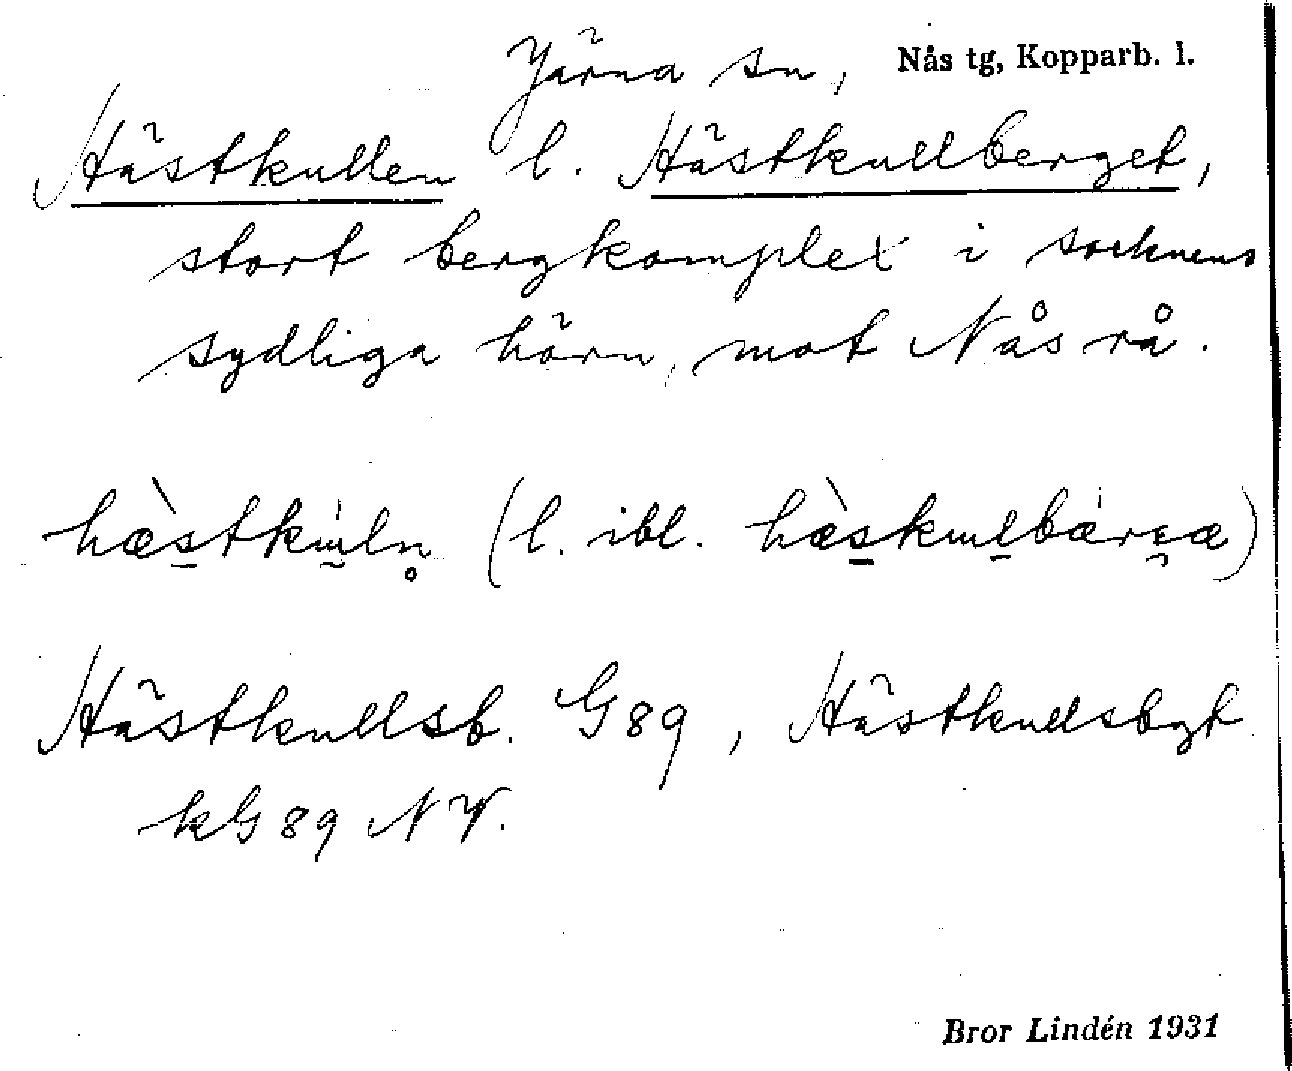 Järna sn, Nås tg, Kopparb. l.
Hästkullen l. Hästkullberget,
stort bergkomplex i socknens
sydliga hörn, mot Nås rå.
hæ̀stkuln̥ (l. ibl. hæ̀skulbæræ)
Hästkullsb. G89, Hästkullsbgt
kG89 NV.
Bror Lindén 1931